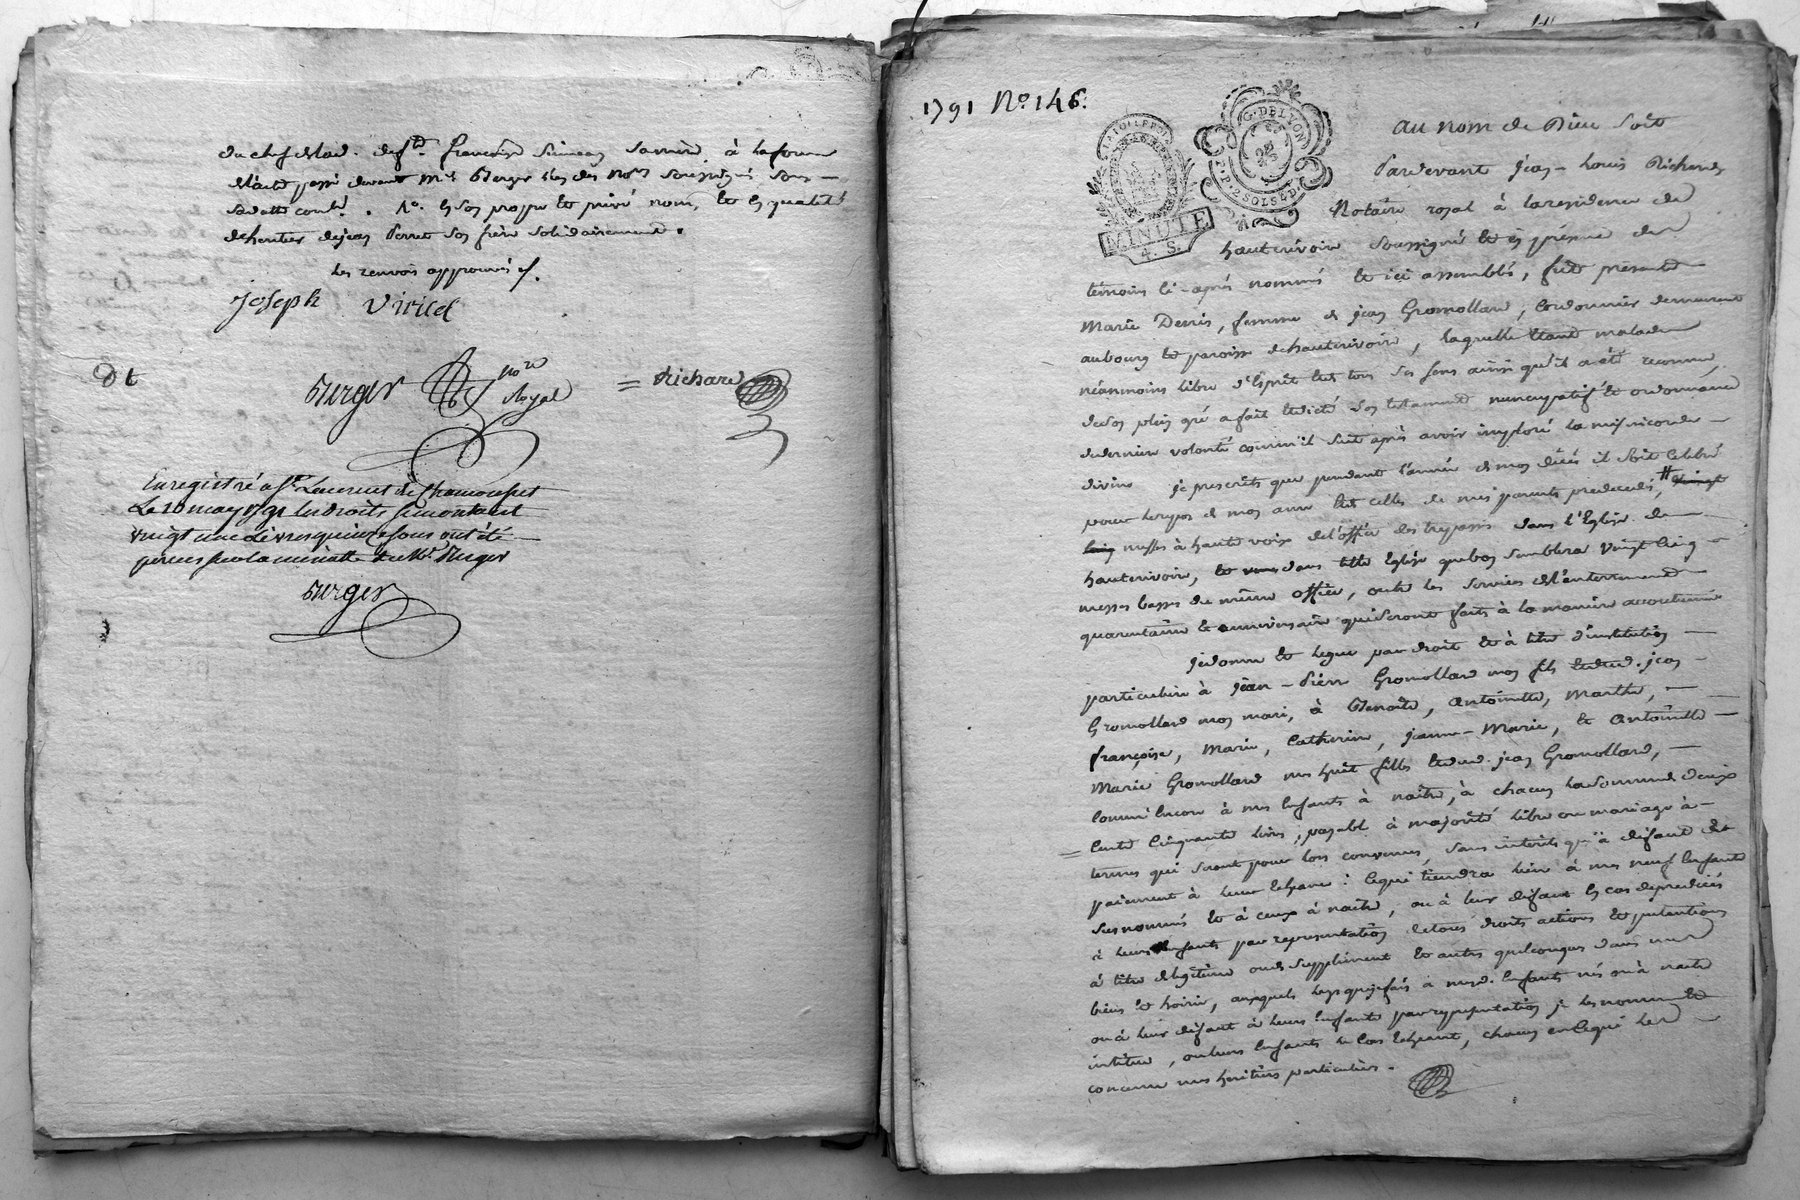 du chef de lad. deff.te françoise Simeon sa mère à la forme
de l'acte passé devant m.e Berger l'un des no.res soussignés sous
sa datte con.lé. 1.o en son propre et privé nom, et en qualité
d'heritier de jean Perret son frère solidairement.
les renvois approuvés ./.
joseph Viricel
Dt
Berger no.re Royal
= Richard
Enregistré a S.t Laurent de Chamousset
Le 20 may 1791 les droits se montant
vingt une Livres quinze sous ont été
perçus sur la minutte de M.e Berger
Berger
1791 N.o 146.
G. DE LYON
P.P. 2 SOLS 8 D.
MINUTE
4. S.
Au nom de Dieu soit
Pardevant Jean-Louis Richard
Notaire royal à la residence de
hauterivoire soussigné et en présence des
témoins ci-après nommés et ici assemblés, fut présente
Marie Denis, femme de jean Gromolard, cordonnier demeurant
au bourg et paroisse de hauterivoire, laquelle étant malade
néanmoins libre d'esprit et de tous ses sens ainsi qu'il a été reconnu,
de son plein gré a fait et dicté son testament nuncupatif et ordonnance
de dernière volonté comm'il suit après avoir imploré la misericorde
divine je prescrits que pendant l'année de mon décès il soit celebré
pour le repos de mon ame et celles de mes parents predecedés, # vingt
cinq messes à haute voix de l'office des trepassés dans l'Eglise de
hauterivoire, et dans telle Eglise que bon semblera vingt cinq
messes basses du même office, outre les services de l'enterrement
quarantaine et anniversaire qui seront faits à la maniere accoutumée
je donne et legue par droit et à titre d'institution
particuliere à jean-Pierre Gromolard mon fils et dud. jean
Gromolard mon mari, à Benoite, Antoinette, Marthe,
françoise, Marie, Catherine, jeanne-Marie, et Antoinette
Marie Gromolard mes huit filles et dud. jean Gromolard,
comm'encore à mes enfants à naitre, à chacun la somme de deux
cents cinquante livres, payable à majorité libre ou mariage à
termes qui seront pour lors convenus, sans interets qu'à défaut de
paiement à leur echeance : ce qui tiendra lieu à mes neuf enfants
susnommés et à ceux à naitre, ou à leur défaut en cas de predécès
à leurs enfants par representation de tous droits actions et pretentions
à titre de legitime ou de supplément et autres quelconques dans mes
biens et hoirie, auxquels legs que je fais à mesd. enfants nés ou à naitre
ou à leur défaut à leurs enfants par representation je les nomme et
institue, ou leurs enfants le cas échéant, chacun en ce qui les
concerne mes heritiers particuliers.